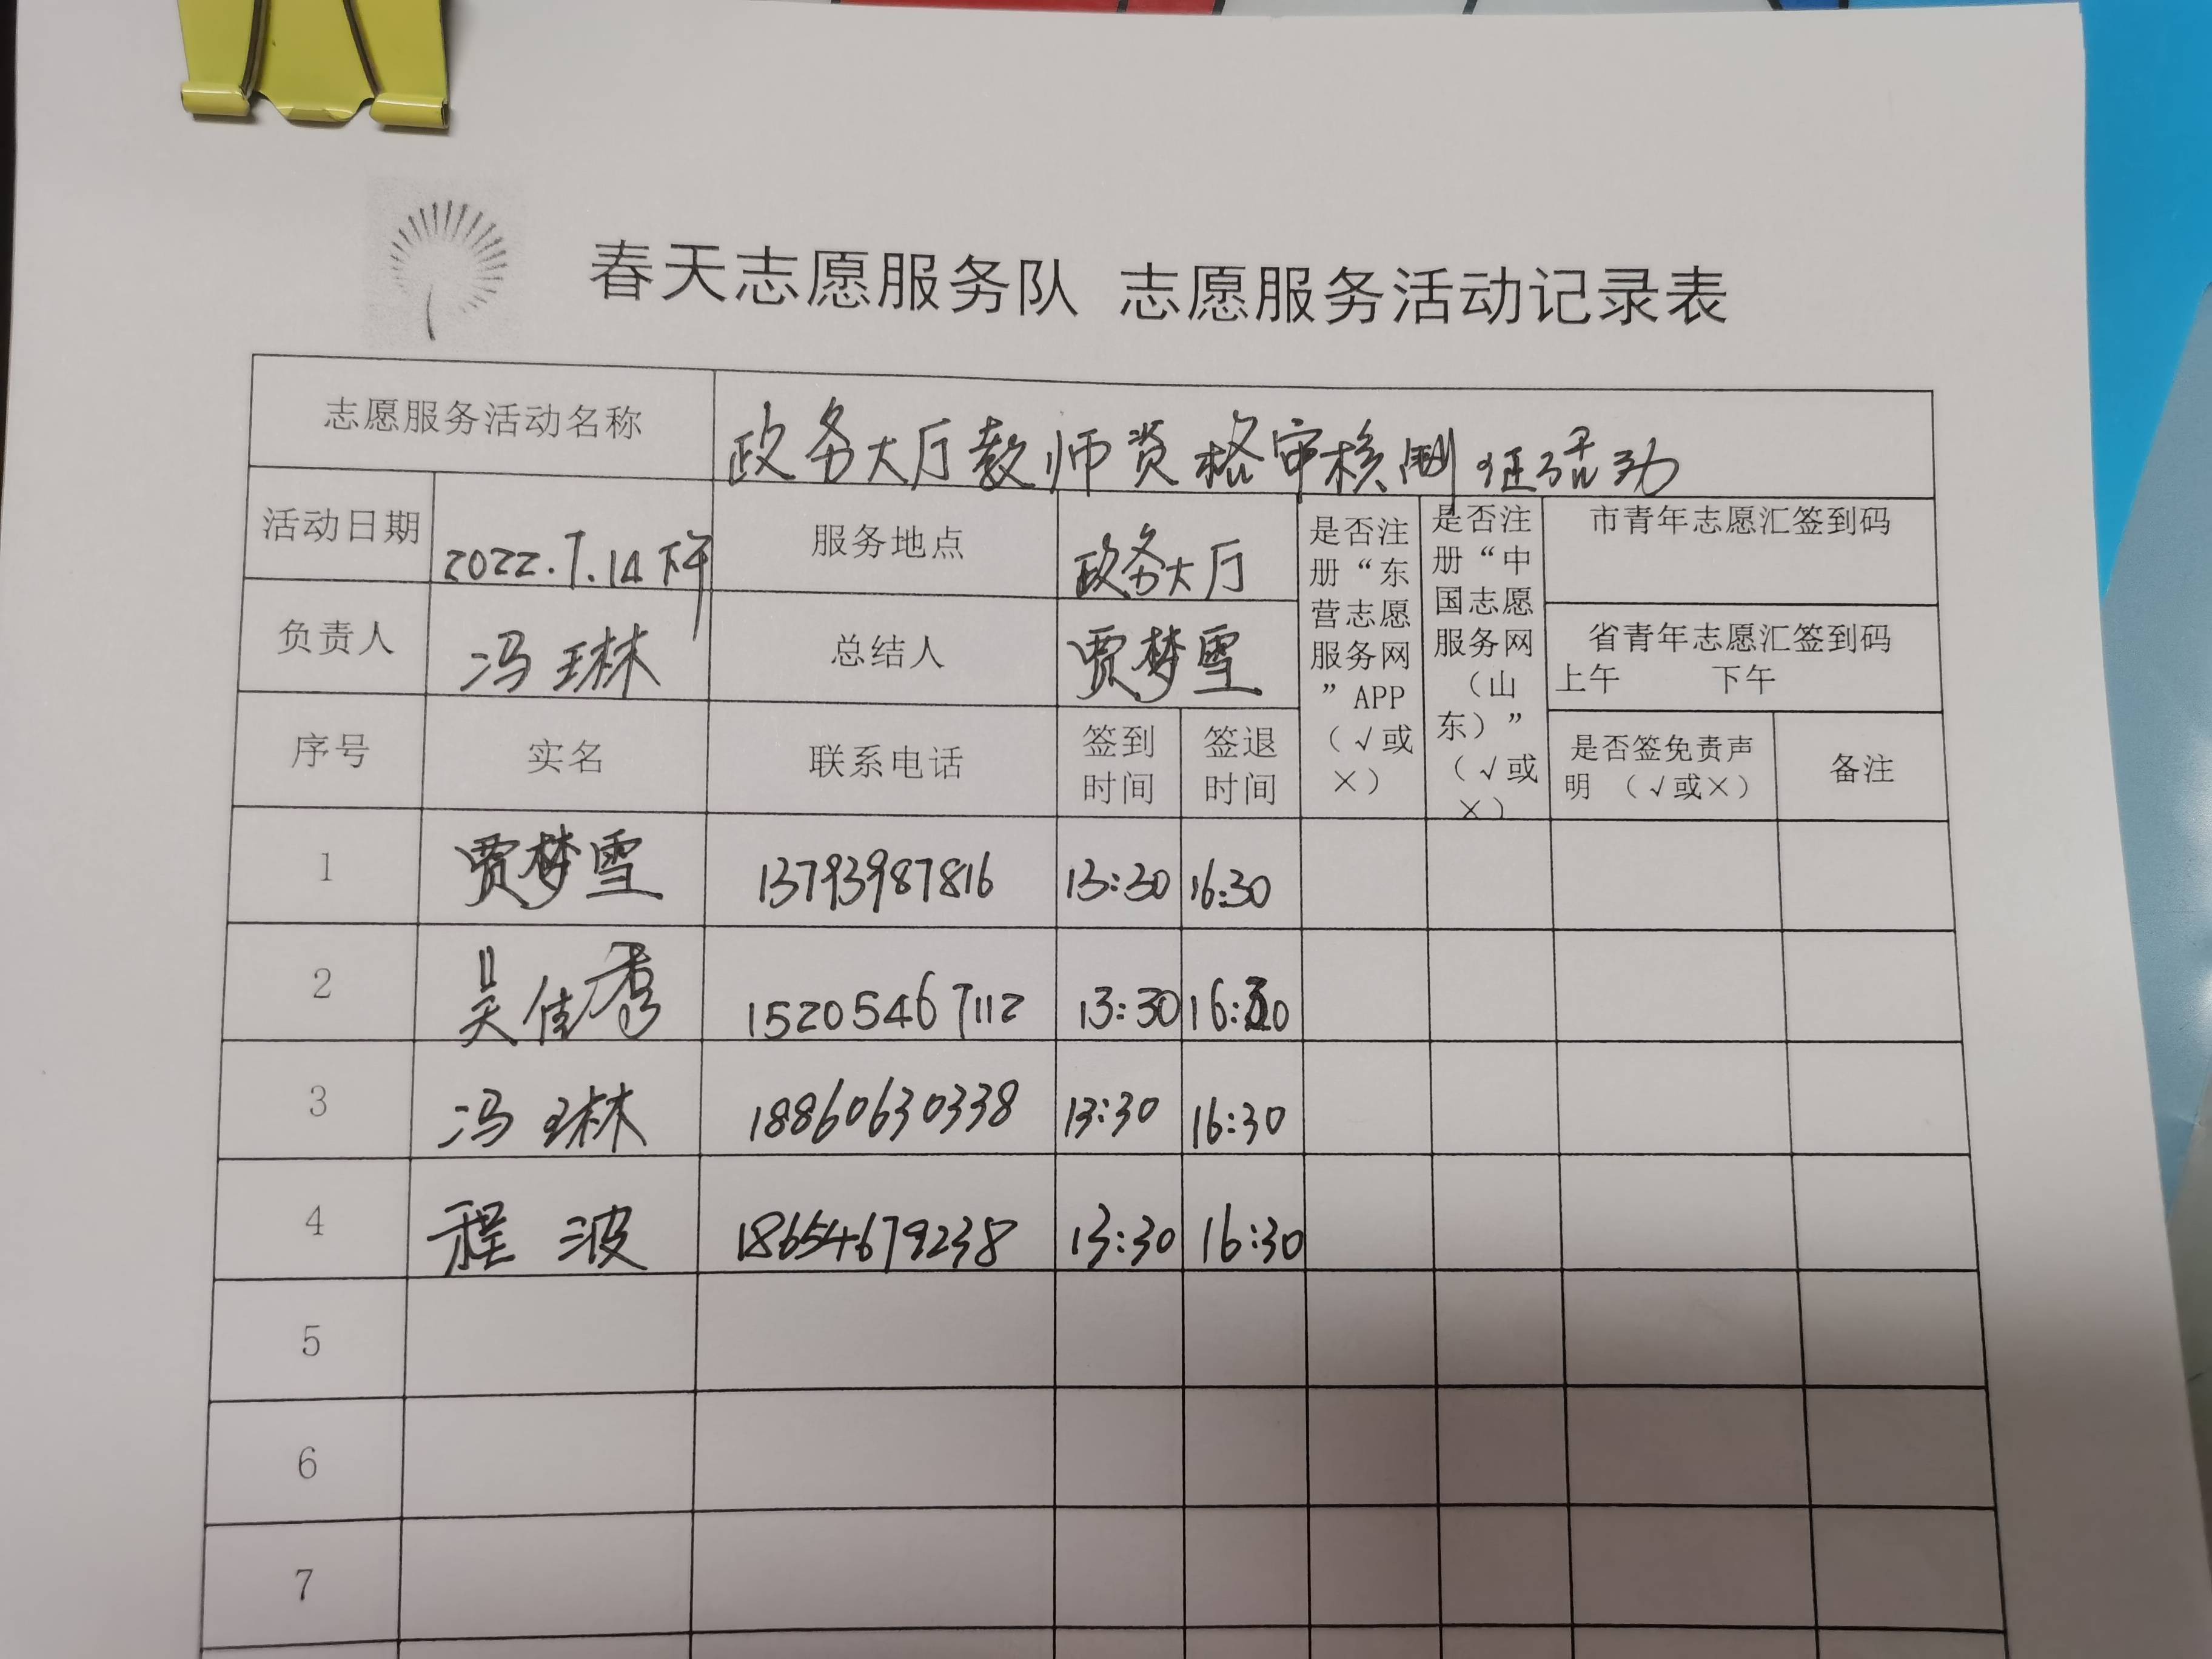 春天志愿服务队 志愿服务活动记录表
志愿服务活动名称 政务大厅教师资格审核制证活动
活动日期 2022.7.14下午 服务地点 政务大厅
是否注册“东营志愿服务网”APP（√或×）
是否注册“中国志愿服务网（山东）”（√或×）
市青年志愿汇签到码
负责人 冯琳 总结人 贾梦雪
省青年志愿汇签到码
上午 下午
序号 实名 联系电话 签到时间 签退时间 是否签免责声明（√或×） 备注
1 贾梦雪 13793987816 13:30 16:30
2 吴佳秀 15205467112 13:30 16:30
3 冯琳 18860630338 13:30 16:30
4 程波 18654679238 13:30 16:30
5
6
7